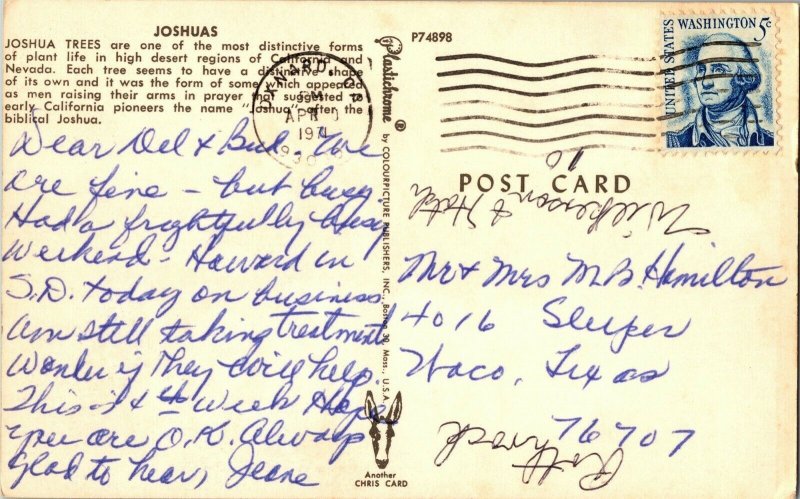 JOSHUAS
JOSHUA TREES are one of the most distinctive forms
of plant life in high desert regions of California and
Nevada. Each tree seems to have a distinctive shape
of its own and it was the form of some which appeared
as men raising their arms in prayer that suggested to
early California pioneers the name "Joshua" after the
biblical Joshua.
Dear Del & Bud. We
are fine - but busy.
Had a frightfully busy
weekend. Howard in
S.D. today on business.
Am still taking treatments
Wonder if they will help.
This is 4th week Hope
you are O.K. Always
glad to hear, Jeane
Plastichrome ®
by COLOURPICTURE PUBLISHERS, INC., Boston 30, Mass., U.S.A.
Another
CHRIS CARD
P74898
OXNARD, CA
PM
APR
1971
930
UNITED STATES
WASHINGTON 5c
POST CARD
Wilkerson & Hatch
Mr & Mrs M.B. Hamilton
4016 Sleeper
Waco, Texas
76707